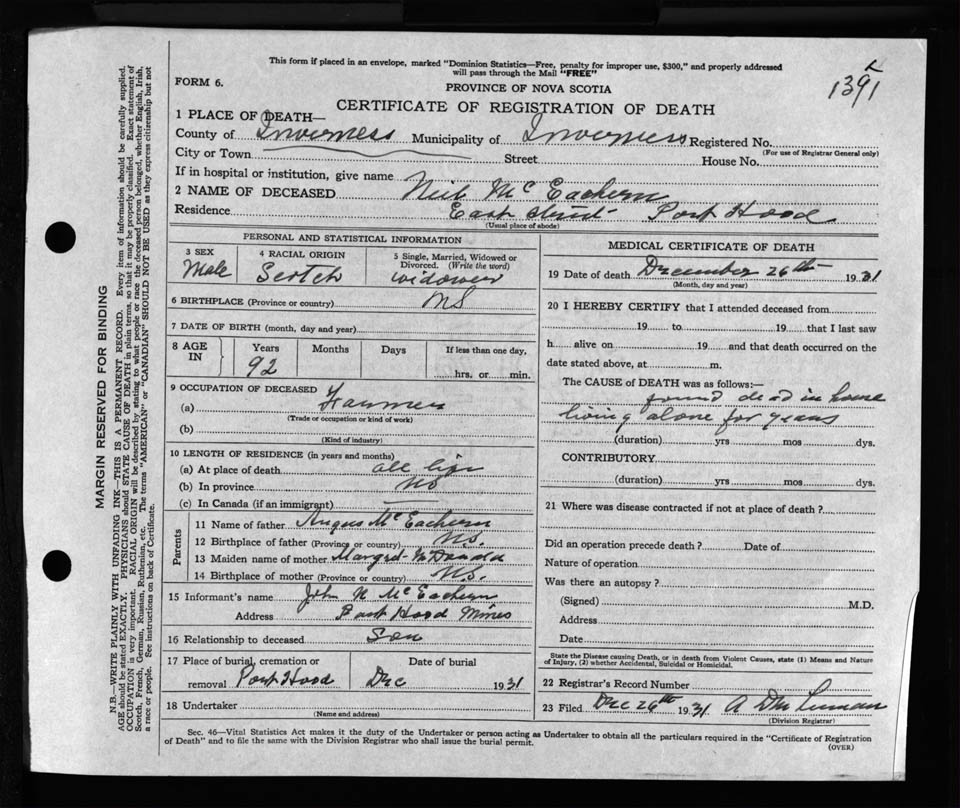 This form if placed in an envelope, marked "Dominion Statistics—Free, penalty for improper use, $300," and properly addressed
will pass through the Mail "FREE"
FORM 6.
PROVINCE OF NOVA SCOTIA
1391
CERTIFICATE OF REGISTRATION OF DEATH
1 PLACE OF DEATH—
County of Inverness Municipality of Inverness Registered No.
(For use of Registrar General only)
City or Town Street House No.
If in hospital or institution, give name
2 NAME OF DECEASED Neil McEachern
Residence East Street Port Hood
(Usual place of abode)
PERSONAL AND STATISTICAL INFORMATION
3 SEX 4 RACIAL ORIGIN 5 Single, Married, Widowed or
Divorced. (Write the word)
Male Scotch widower
6 BIRTHPLACE (Province or country) NS
7 DATE OF BIRTH (month, day and year)
8 AGE IN Years Months Days If less than one day,
92 hrs. or min.
9 OCCUPATION OF DECEASED
(a) Farmer
(Trade or occupation or kind of work)
(b)
(Kind of industry)
10 LENGTH OF RESIDENCE (in years and months)
(a) At place of death all life
(b) In province NS
(c) In Canada (if an immigrant)
Parents
11 Name of father Angus McEachern
12 Birthplace of father (Province or country) N.S.
13 Maiden name of mother Margret McDonald
14 Birthplace of mother (Province or country) N.S.
15 Informant's name John N McEachern
Address Port Hood Mines
16 Relationship to deceased Son
17 Place of burial, cremation or Date of burial
removal Port Hood Dec 1931
18 Undertaker
(Name and address)
MEDICAL CERTIFICATE OF DEATH
19 Date of death December 26th 1931
(Month, day and year)
20 I HEREBY CERTIFY that I attended deceased from
19 to 19 that I last saw
h alive on 19 and that death occurred on the
date stated above, at m.
The CAUSE OF DEATH was as follows:—
found dead in house
living alone for years
(duration) yrs mos dys.
CONTRIBUTORY
(duration) yrs mos dys.
21 Where was disease contracted if not at place of death?
Did an operation precede death? Date of
Nature of operation
Was there an autopsy?
(Signed) M.D.
Address
Date
State the Disease causing Death, or in death from Violent Causes, state (1) Means and Nature
of Injury, (2) whether Accidental, Suicidal or Homicidal.
22 Registrar's Record Number
23 Filed Dec 26th 1931 A
(Division Registrar)
Sec. 46—Vital Statistics Act makes it the duty of the Undertaker or person acting as Undertaker to obtain all the particulars required in the "Certificate of Registration
of Death" and to file the same with the Division Registrar who shall issue the burial permit.
(OVER)
MARGIN RESERVED FOR BINDING
N.B.—WRITE PLAINLY WITH UNFADING INK—THIS IS A PERMANENT RECORD. Every item of information should be carefully supplied.
AGE should be stated EXACTLY. PHYSICIANS should STATE CAUSE OF DEATH in plain terms, so that it may be properly classified. Exact statement of
OCCUPATION is very important. RACIAL ORIGIN will be described by stating to what people or race the deceased person belonged, whether English, Irish,
Scotch, French, German, Russian, Ruthenian, etc. The terms "AMERICAN" or "CANADIAN" SHOULD NOT BE USED as they express citizenship but not
a race or people. See instructions on back of Certificate.